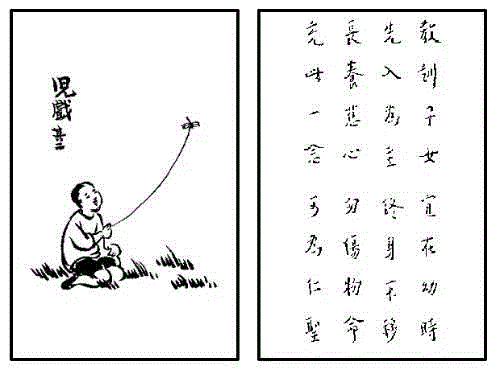 兒戲其二
教訓子女宜在幼時
先入為主終身不移
長養慈心勿傷物命
充此一念可為仁聖